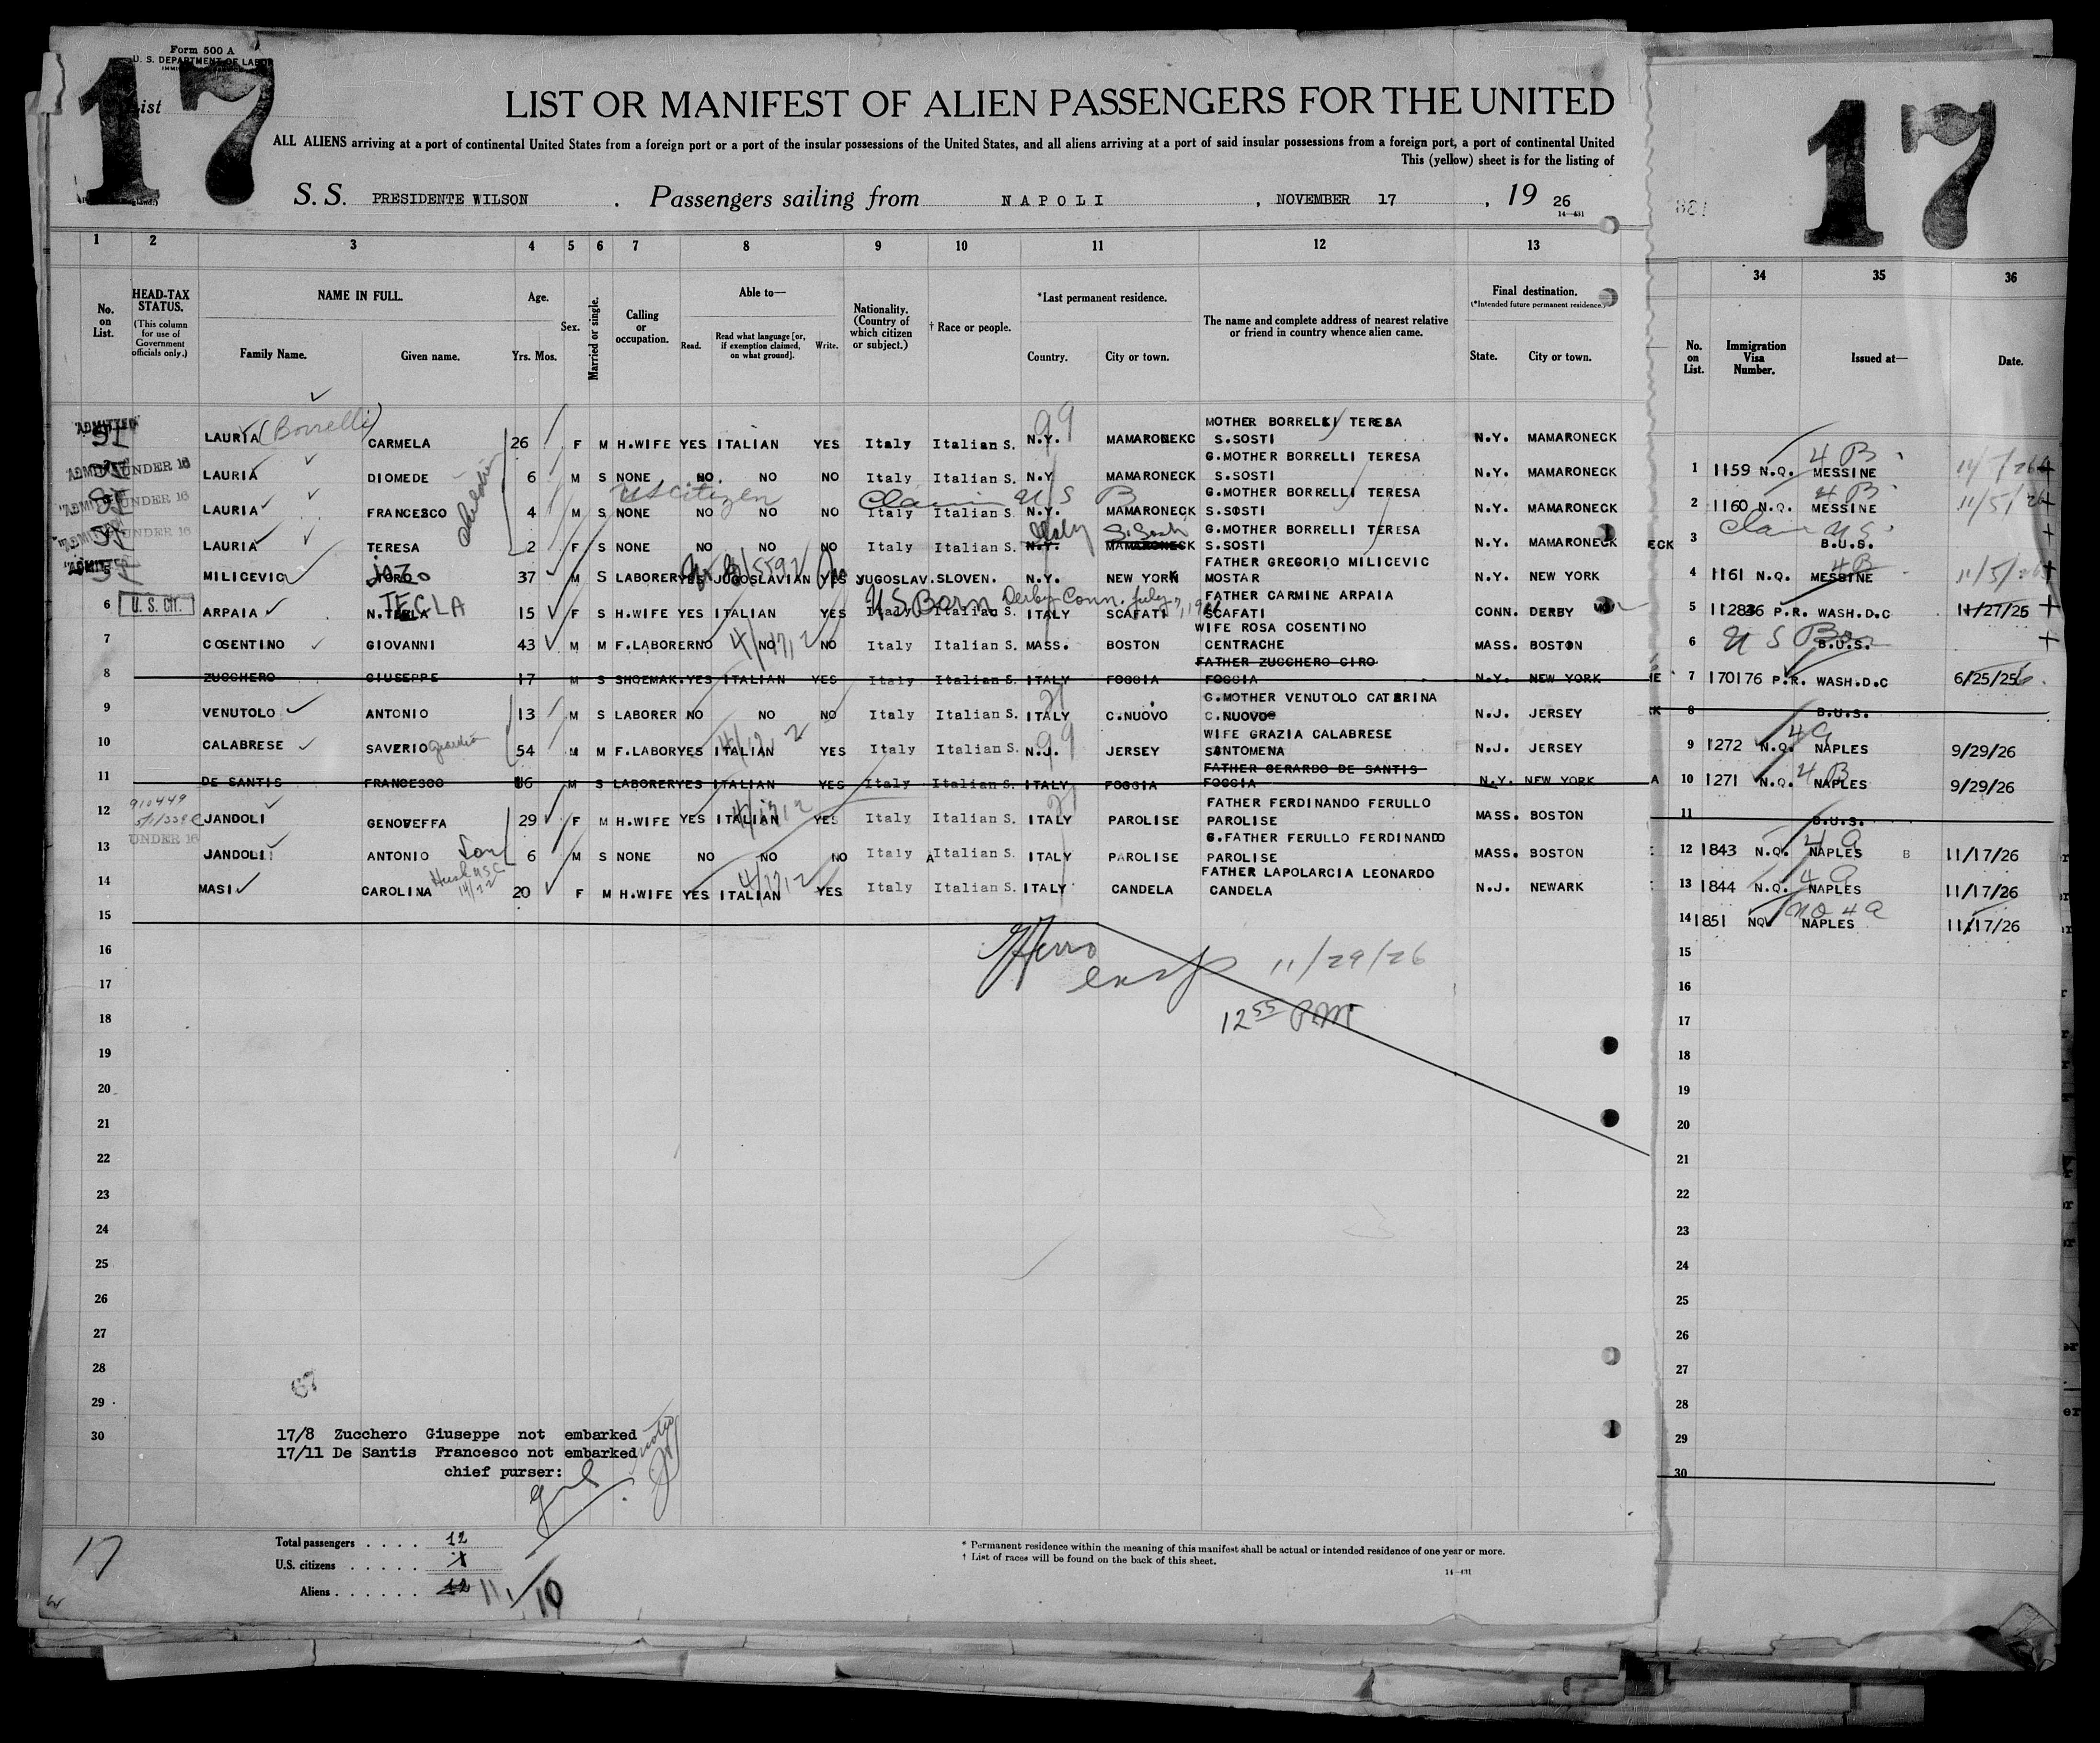 Form 500 A
U. S. DEPARTMENT OF LABOR
List
17
LIST OR MANIFEST OF ALIEN PASSENGERS FOR THE UNITED
ALL ALIENS arriving at a port of continental United States from a foreign port or a port of the insular possessions of the United States, and all aliens arriving at a port of said insular possessions from a foreign port, a port of continental United
This (yellow) sheet is for the listing of
S. S. PRESIDENTE WILSON . Passengers sailing from NAPOLI , NOVEMBER 17 , 19 26
14—431
1 2 3 4 5 6 7 8 9 10 11 12 13
No. on List.
HEAD-TAX STATUS.
(This column for use of Government officials only.)
NAME IN FULL.
Family Name. Given name.
Age.
Yrs. Mos.
Sex.
Married or single.
Calling or occupation.
Able to—
Read. Read what language [or, if exemption claimed, on what ground]. Write.
Nationality. (Country of which citizen or subject.)
† Race or people.
*Last permanent residence.
Country. City or town.
The name and complete address of nearest relative or friend in country whence alien came.
Final destination.
(*Intended future permanent residence.)
State. City or town.
99
MOTHER BORRELLI TERESA
ADMITTED LAURIA (Borrelli) CARMELA 26 F M H.WIFE YES ITALIAN YES Italy Italian S. N.Y. MAMARONEKC S.SOSTI N.Y. MAMARONECK
G.MOTHER BORRELLI TERESA
UNDER 16 LAURIA DIOMEDE 6 M S NONE NO. NO NO Italy Italian S. N.Y MAMARONECK S.SOSTI N.Y. MAMARONECK
children
US Citizen Claim U S B
G.MOTHER BORRELLI TERESA
UNDER 16 LAURIA FRANCESCO 4 M S NONE NO NO NO Italy Italian S. N.Y. MAMARONECK S.SOSTI N.Y. MAMARONECK
Italy S. Sosti
G.MOTHER BORRELLI TERESA
UNDER 16 LAURIA TERESA 2 F S NONE NO NO NO Italy Italian S. N.Y. MAMARONECK S.SOSTI N.Y. MAMARONECK
FATHER GREGORIO MILICEVIC
5 MILICEVIC JOZO 37 M S LABORER YES JUGOSLAVIAN YES YUGOSLAV. SLOVEN. N.Y. NEW YORK MOSTAR N.Y. NEW YORK
TECLA US Born Derby Conn. July
FATHER CARMINE ARPAIA
6 U. S. CIT. ARPAIA N.TECLA 15 F S H.WIFE YES ITALIAN YES Italy Italian S. ITALY SCAFATI SCAFATI CONN. DERBY
WIFE ROSA COSENTINO
7 COSENTINO GIOVANNI 43 M M F.LABORER NO NO NO Italy Italian S. MASS. BOSTON CENTRACHE MASS. BOSTON
FATHER ZUCCHERO CIRO
8 ZUCCHERO GIUSEPPE 17 M S SHOEMAK. YES ITALIAN YES Italy Italian S. ITALY FOGGIA FOGGIA N.Y. NEW YORK
G.MOTHER VENUTOLO CATERINA
9 VENUTOLO ANTONIO 13 M S LABORER NO NO NO Italy Italian S. ITALY C.NUOVO C.NUOVO N.J. JERSEY
WIFE GRAZIA CALABRESE
10 CALABRESE SAVERIO guardian 54 M M F.LABOR YES ITALIAN YES Italy Italian S. N.J. JERSEY SANTOMENA N.J. JERSEY
FATHER GERARDO DE SANTIS
11 DE SANTIS FRANCESCO 16 M S LABORER YES ITALIAN YES Italy Italian S. ITALY FOGGIA FOGGIA N.Y. NEW YORK
910449
FATHER FERDINANDO FERULLO
12 JANDOLI GENOVEFFA 29 F M H.WIFE YES ITALIAN YES Italy Italian S. ITALY PAROLISE PAROLISE MASS. BOSTON
UNDER 16
G.FATHER FERULLO FERDINANDO
13 JANDOLI ANTONIO Son 6 M S NONE NO NO NO Italy Italian S. ITALY PAROLISE PAROLISE MASS. BOSTON
FATHER LAPOLARCIA LEONARDO
14 MASI CAROLINA 20 F M H.WIFE YES ITALIAN YES Italy Italian S. ITALY CANDELA CANDELA N.J. NEWARK
15
16
11/29/26
17
12 55 PM
18
19
20
21
22
23
24
25
26
27
28
29
30
17/8 Zucchero Giuseppe not embarked
17/11 De Santis Francesco not embarked
chief purser:
17
Total passengers . . . . 12
U.S. citizens . . . . . .
Aliens . . . . . . 12 11 10
* Permanent residence within the meaning of this manifest shall be actual or intended residence of one year or more.
† List of races will be found on the back of this sheet.
14—431
17
34 35 36
No. on List. Immigration Visa Number. Issued at— Date.
4 B
1 1159 N.Q. MESSINE 11/5/26
4 B
2 1160 N.Q. MESSINE 11/5/26
Claim U S
ECK 3 B.U.S.
4 B
4 1161 N.Q. MESSINE 11/5/26
5 112836 P.R. WASH.D.C 11/27/25
U S Born
6 B.U.S.
7 170176 P.R. WASH.D.C 6/25/26
8 B.U.S.
4 a
9 1272 N.Q. NAPLES 9/29/26
4 B
A 10 1271 N.Q. NAPLES 9/29/26
11 B.U.S.
4 a
12 1843 N.Q. NAPLES B 11/17/26
4 a
13 1844 N.Q. NAPLES 11/17/26
NQ 4 a
14 1851 NQ NAPLES 11/17/26
15
16
17
18
19
20
21
22
23
24
25
26
27
28
29
30